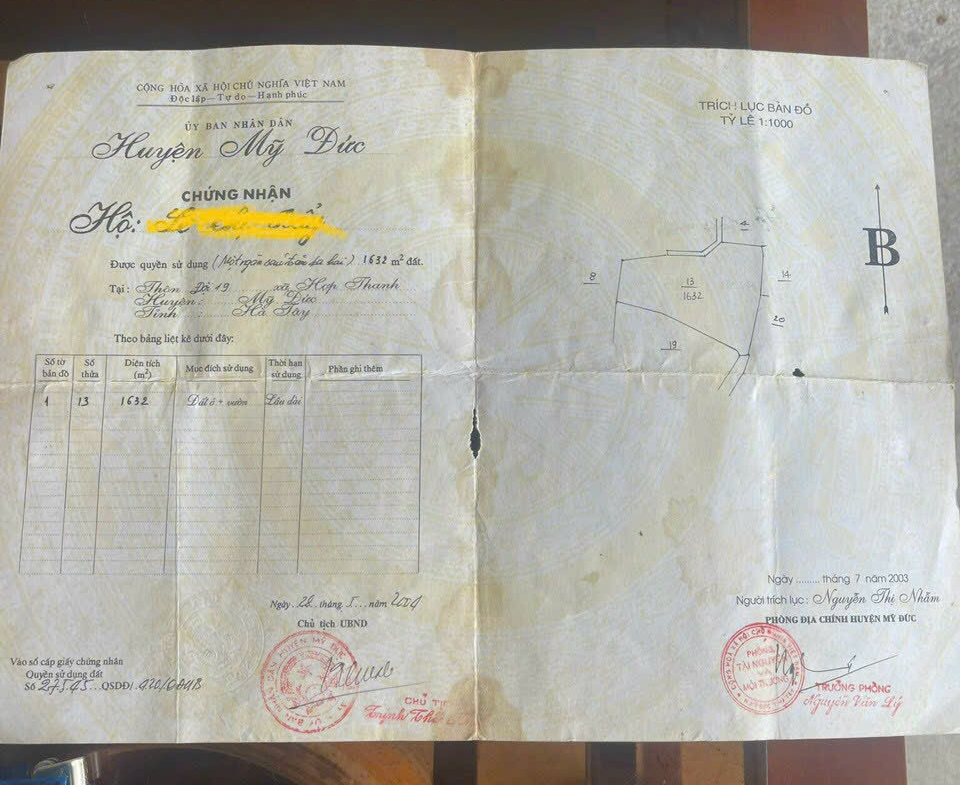 CỘNG HÒA XÃ HỘI CHỦ NGHĨA VIỆT NAM
Độc lập - Tự do - Hạnh phúc
ỦY BAN NHÂN DÂN
Huyện Mỹ Đức
CHỨNG NHẬN
Hộ:
Được quyền sử dụng (Một ngàn sáu trăm ba hai) 1632 m² đất.
Tại: Thôn Đội 19 xã Hợp Thanh
Huyện: Mỹ Đức
Tỉnh Hà Tây
Theo bảng liệt kê dưới đây:
Số tờ bản đồ Số thửa Diện tích (m²) Mục đích sử dụng Thời hạn sử dụng Phần ghi thêm
1 13 1632 Đất ở + vườn Lâu dài
Ngày 28 tháng 5 năm 2004
Chủ tịch UBND
Vào sổ cấp giấy chứng nhận
Quyền sử dụng đất
Số QSDĐ/
CHỦ TỊ
Trịnh Thế
TRÍCH LỤC BẢN ĐỒ
TỶ LỆ 1:1000
B
4
8
13
1632
14
20
19
Ngày ......... tháng 7 năm 2003
Người trích lục: Nguyễn Thị Nhâm
PHÒNG ĐỊA CHÍNH HUYỆN MỸ ĐỨC
PHÒNG
TÀI NGUYÊN
VÀ
MÔI TRƯỜNG
TRƯỞNG PHÒNG
Nguyễn Văn Lý